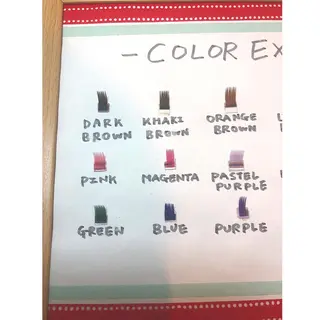 - COLOR EX
DARK BROWN
KHAKI BROWN
ORANGE BROWN
PINK
MAGENTA
PASTEL PURPLE
GREEN
BLUE
PURPLE